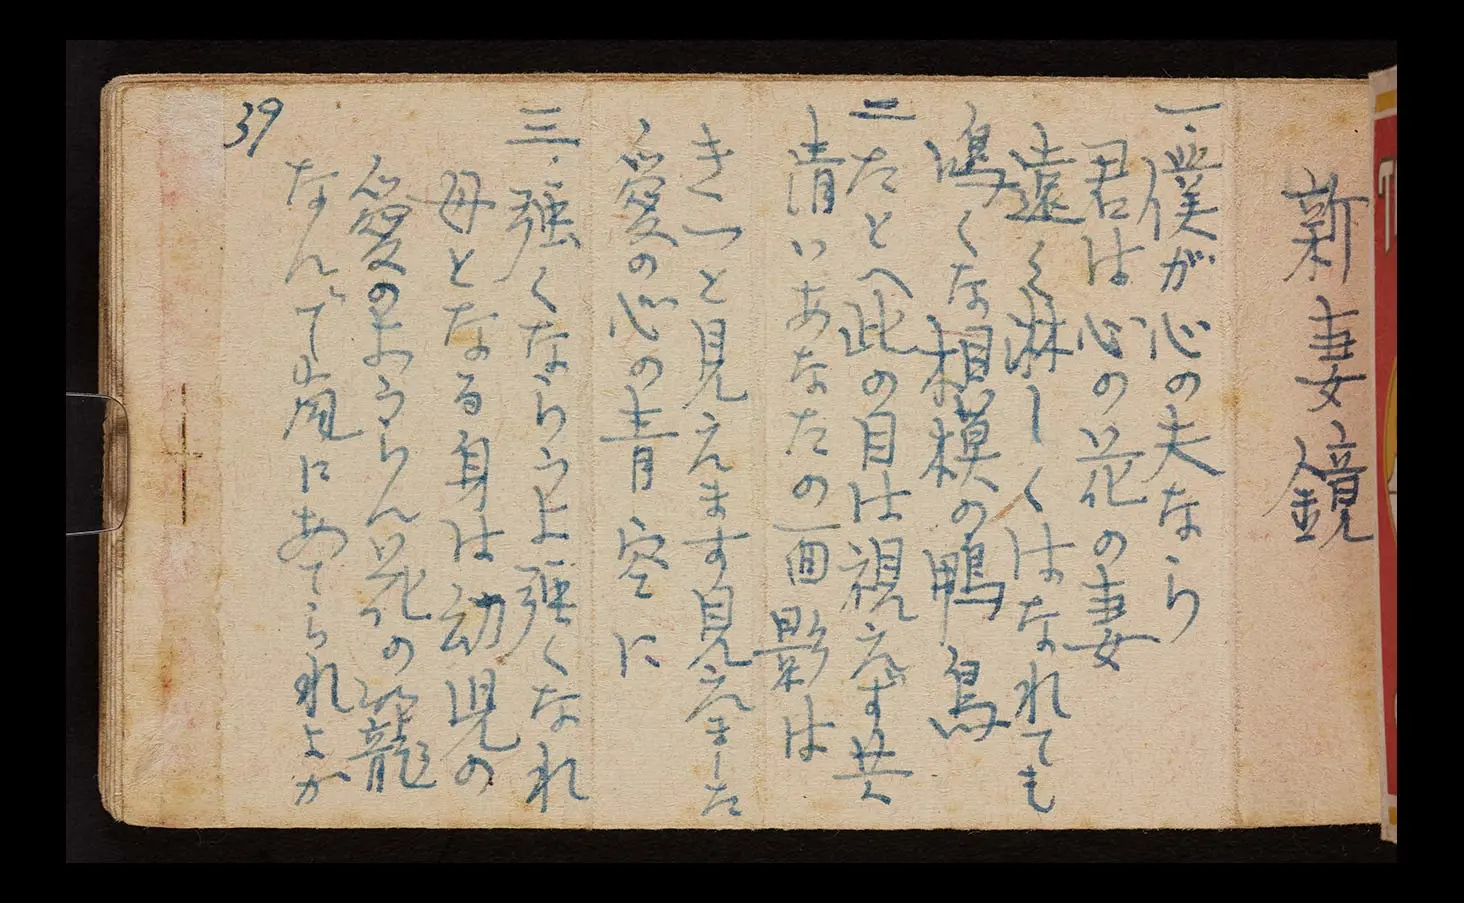 新妻鏡
一.僕が心の夫なら
君は心の花の妻
遠く淋しくはなれても
鳴くな相模の鴨鳥
二 たとへ此の目は視えず共
清いあなたの面影は
きつと見えます見えました
愛の心の青空に
三.強くならうよ強くなれ
母となる身は幼児の
愛のようらん花の籠
なんで嵐にあてられよか
39